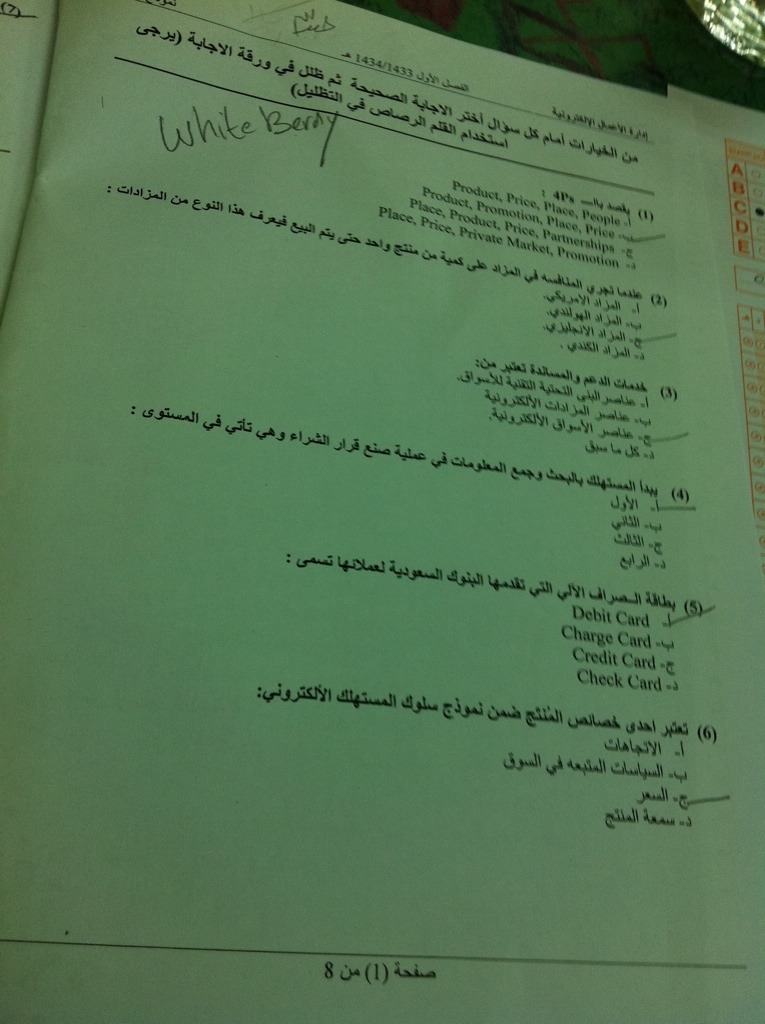 (7)
نموذج
الفصل الأول 1434/1433 هـ
إدارة الأعمال الإلكترونية
من الخيارات أمام كل سؤال أختر الاجابة الصحيحة ثم ظلل في ورقة الاجابة (يرجى
استخدام القلم الرصاص في التظليل)
White Berry
(1) يقصد بالـ 4Ps :
أ- Product, Price, Place, People
ب- Product, Promotion, Place, Price
ج- Place, Product, Price, Partnerships
د- Place, Price, Private Market, Promotion
(2) عندما تجري المنافسه في المزاد على كمية من منتج واحد حتى يتم البيع فيعرف هذا النوع من المزادات :
أ- المزاد الامريكي.
ب- المزاد الهولندي.
ج- المزاد الانجليزي.
د- المزاد الكندي .
(3) خدمات الدعم والمساندة تعتبر من:
أ- عناصر البنى التحتية التقنية للأسواق.
ب- عناصر المزادات الألكترونية
ج- عناصر الأسواق الألكترونية.
د- كل ما سبق
(4) يبدأ المستهلك بالبحث وجمع المعلومات في عملية صنع قرار الشراء وهي تأتي في المستوى :
أ- الأول
ب- الثاني
ج- الثالث
د- الرابع
(5) بطاقة الـصراف الآلي التي تقدمها البنوك السعودية لعملائها تسمى :
أ- Debit Card
ب- Charge Card
ج- Credit Card
د- Check Card
(6) تعتبر احدى خصائص المُنتَج ضمن نموذج سلوك المستهلك الألكتروني:
أ- الاتجاهات
ب- السياسات المتبعه في السوق
ج- السعر
د- سمعة المنتج
صفحة (1) من 8
A
B
C
D
E